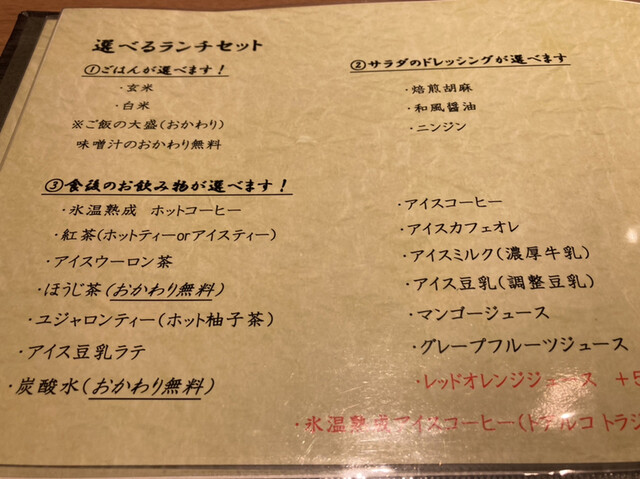 選べるランチセット
①ごはんが選べます!
・玄米
・白米
※ご飯の大盛(おかわり)
味噌汁のおかわり無料
②サラダのドレッシングが選べます
・焙煎胡麻
・和風醤油
・ニンジン
③食後のお飲み物が選べます!
・氷温熟成 ホットコーヒー
・紅茶(ホットティーorアイスティー)
・アイスウーロン茶
・ほうじ茶(おかわり無料)
・ユジャロンティー(ホット柚子茶)
・アイス豆乳ラテ
・炭酸水(おかわり無料)
・アイスコーヒー
・アイスカフェオレ
・アイスミルク(濃厚牛乳)
・アイス豆乳(調整豆乳)
・マンゴージュース
・グレープフルーツジュース
・レッドオレンジジュース +5
・氷温熟成アイスコーヒー(トアルコ トラジ